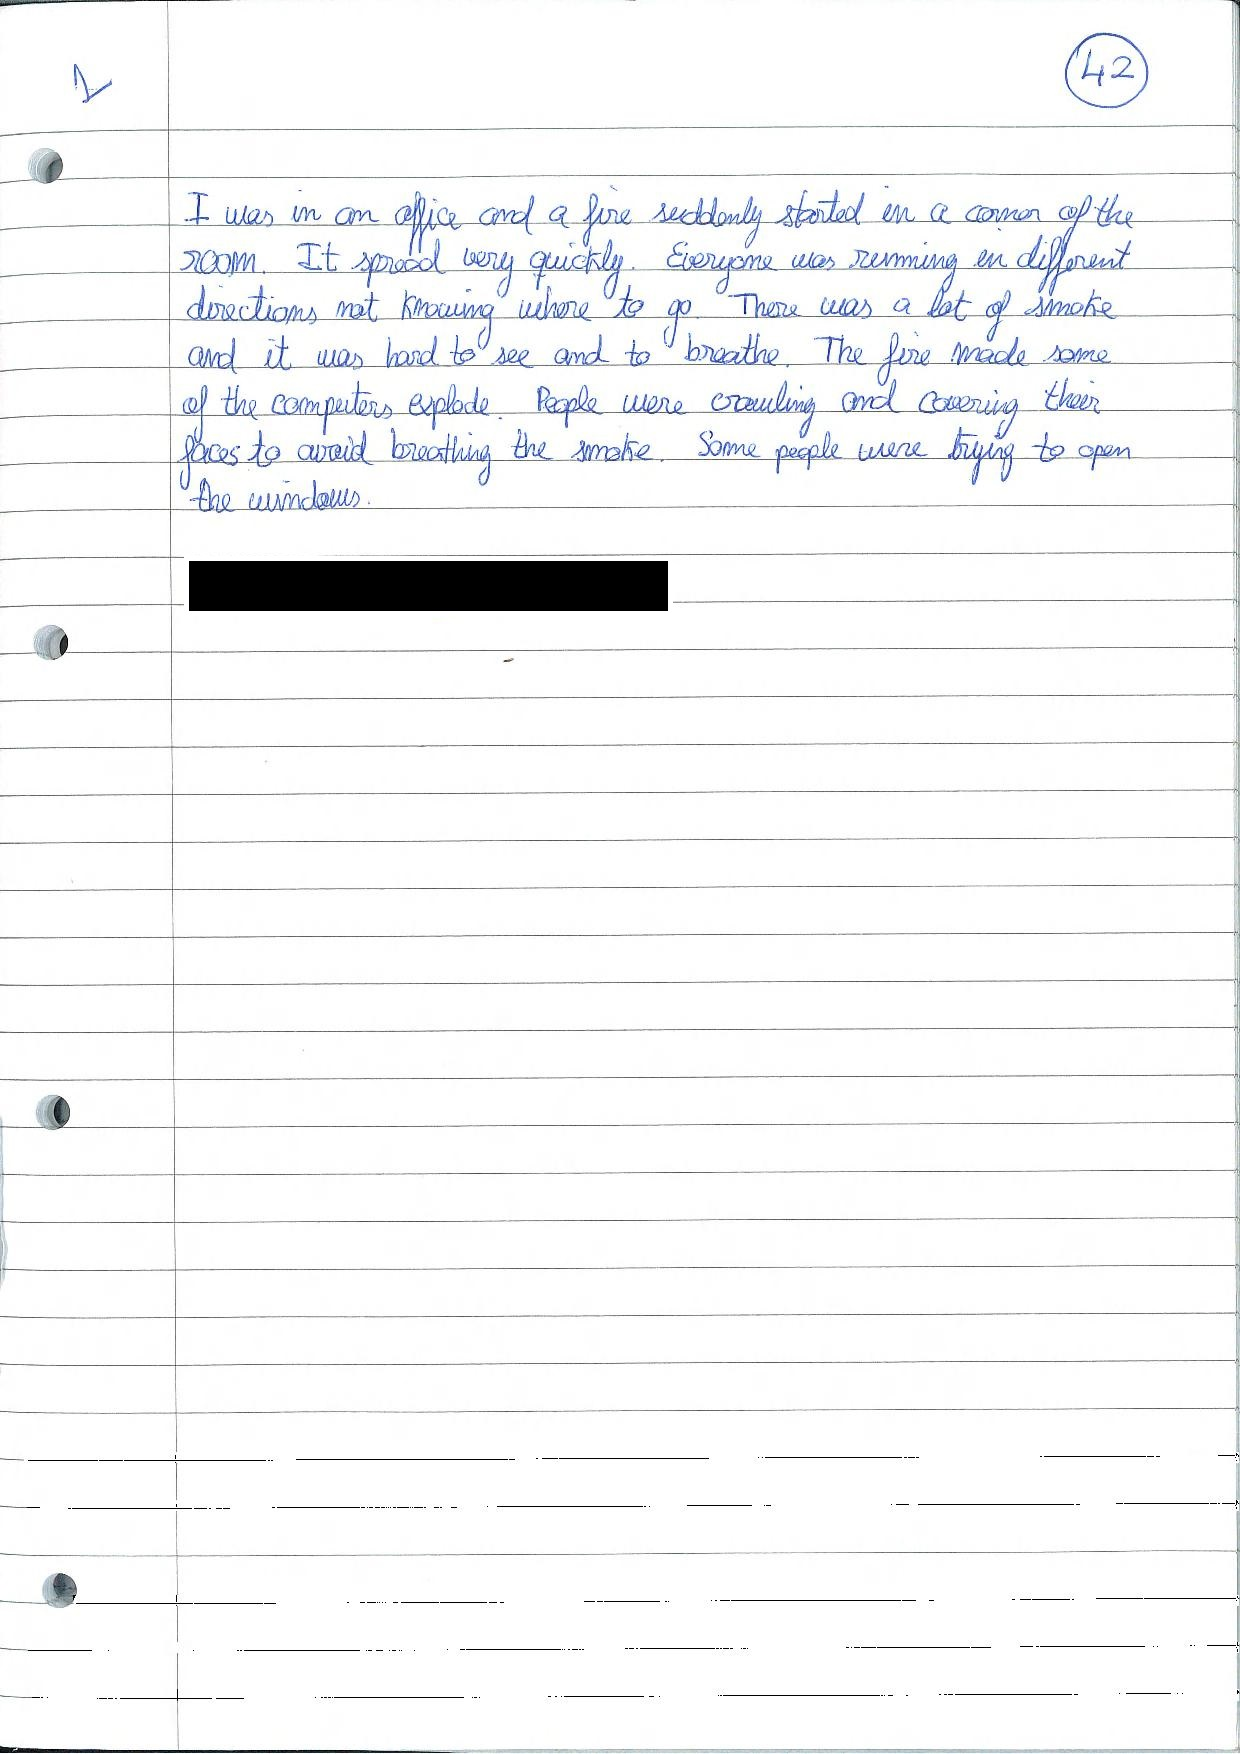 1
42
I was in an office and a fire suddenly started in a corner of the
room. It spread very quickly. Everyone was running in different
directions not knowing where to go. There was a lot of smoke
and it was hard to see and to breathe. The fire made some
of the computers explode. People were crawling and covering their
faces to avoid breathing the smoke. Some people were trying to open
the windows.